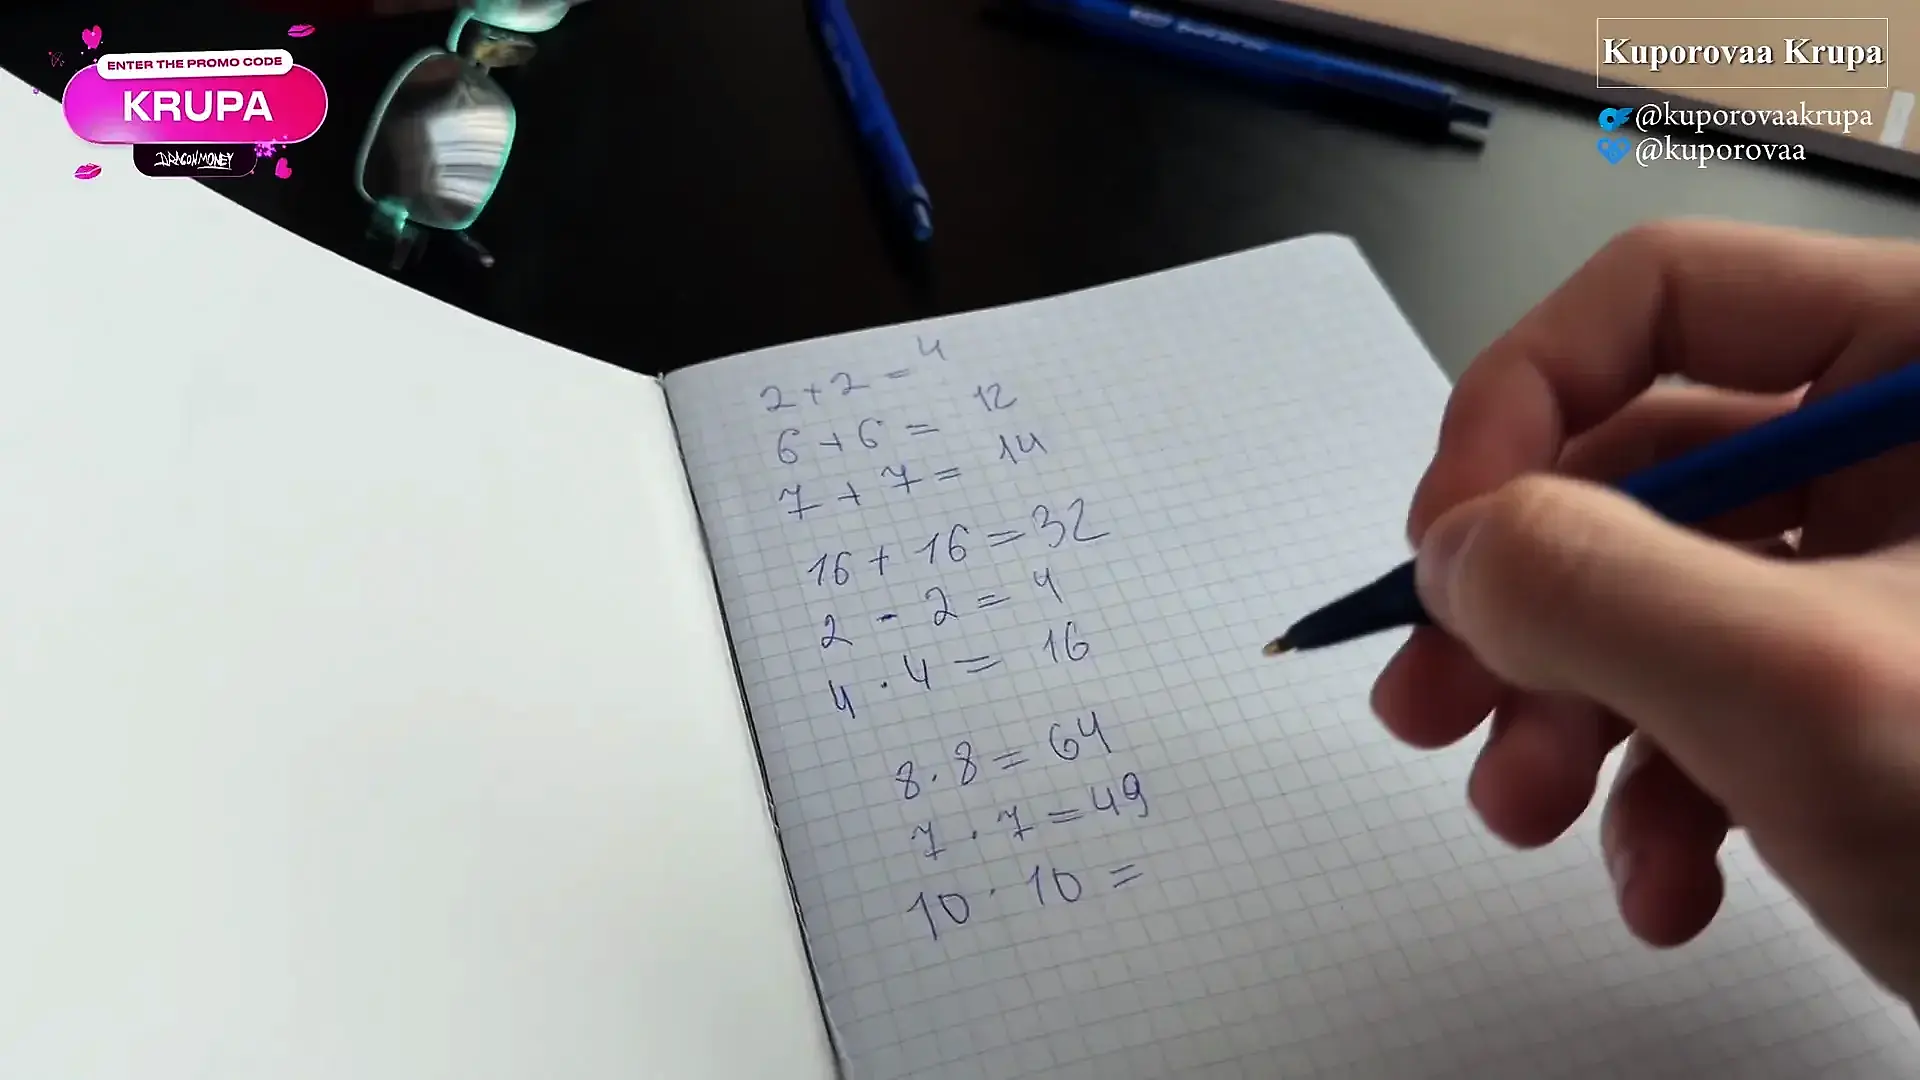 ENTER THE PROMO CODE
KRUPA
DRAGON MONEY
Kuporovaa Krupa
@kuporovaakrupa
@kuporovaa
2 + 2 = 4
6 + 6 = 12
7 + 7 = 14
16 + 16 = 32
2 - 2 = 4
4 · 4 = 16
8 · 8 = 64
7 · 7 = 49
10 · 10 =